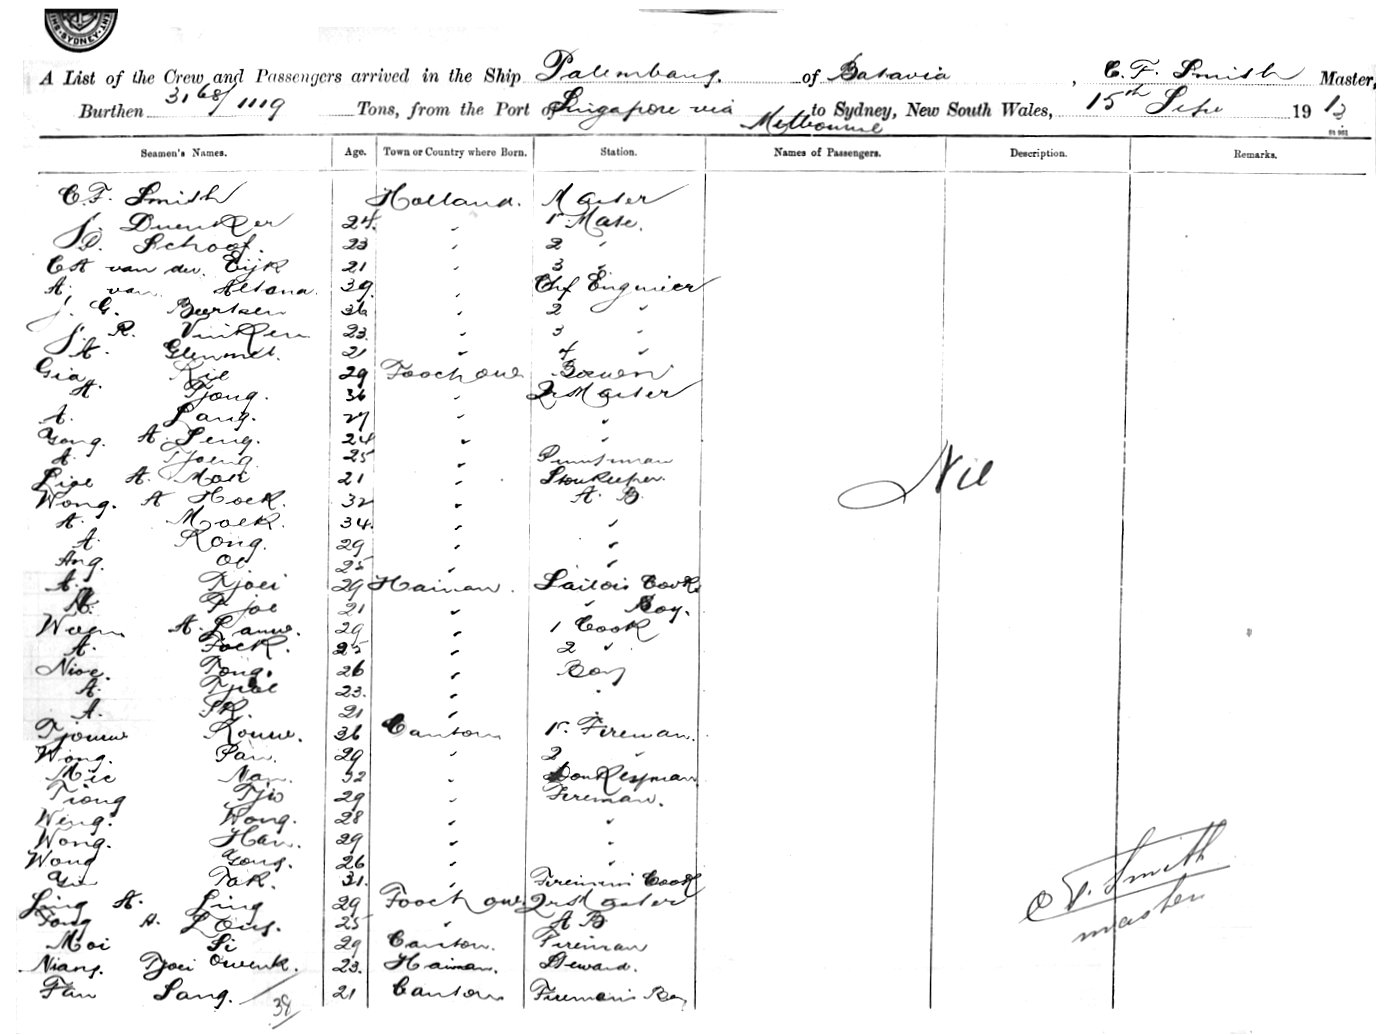 SYDNEY
A List of the Crew and Passengers arrived in the Ship Palembang. of Batavia, C. F. Smith Master,
Burthen 3168/1119 Tons, from the Port of Singapore via Melbourne to Sydney, New South Wales, 15th Sepr 1913
Seamen's Names. Age. Town or Country where Born. Station. Names of Passengers. Description. Remarks.
C. F. Smith Holland. Master
J. Duenker 24. " 1r Mate.
D. Schoof. 23 " 2 "
van der Eijk 21 " 3 "
A. van Altona. 39 " Chf Engineer
J. G. 36 " 2 "
J. R. Vinken 23 " 3 "
A. 21 " 4 "
Gia Kie 29 Foochow
A. Tjong. 36 " Qr Master
A. Lang. 27 " "
Yong. A. Seng. 24 " "
A. Tjoeng 25 "
A. Mok 21 " Storekeeper.
Wong. A Hoek. 32 " A. B.
A. Moek. 34. " "
A. Kong. 29 " "
Ang. 25 " "
A. Tjoei 29 Hainan. Sailors Cook
A. Tjoe 21 " " Boy.
A. 29 " 1 Cook
A. Fock. 25 " 2 "
Nioe. Tong. 26 " Boy
A. 23. " "
A. 21 "
Tjouw Kouw. 36 Canton 1r. Fireman.
Wong. Pan. 29 " 2 "
Mie Nan. 32 " Donkeyman
Tiong Tjio 29 " Fireman.
Weng. Wong. 28 " "
Wong. Han. 29 " "
Wong Yong. 26 " "
Tak. 31. " Firemen's Cook
Ling A. Ling 29 Foochow. Qr Master
Tong A. 25 " A B
Moi Si 29 Canton. Fireman
Niang. Tjoei 23. Hainan. Steward.
Fan Sang. 21 Canton Firemen's Boy
38
Nil
C. F. Smith
master